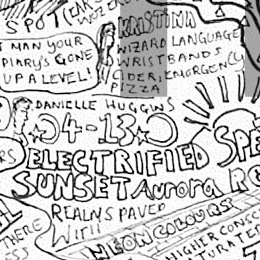 SPOT
MAN YOUR
DIARY'S GONE
UP A LEVEL!
KRISTINA
WIZARD LANGUAGE
WRIST BANDS
CIDER, EMERGENCY
PIZZA
DANIELLE HUGGINS
04-13
SPE
ELECTRIFIED
SUNSET AURORA
REALMS PAVED
WITH
NEON COLOURS
THERE
HIGHER CONSC
TURATE